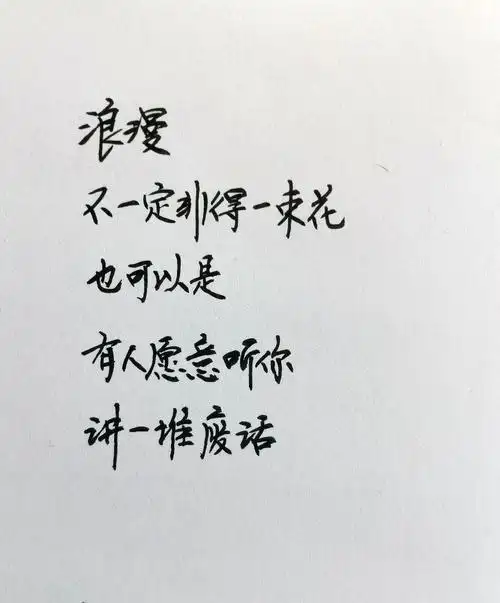 浪漫
不一定非得一束花
也可以是
有人愿意听你
讲一堆废话